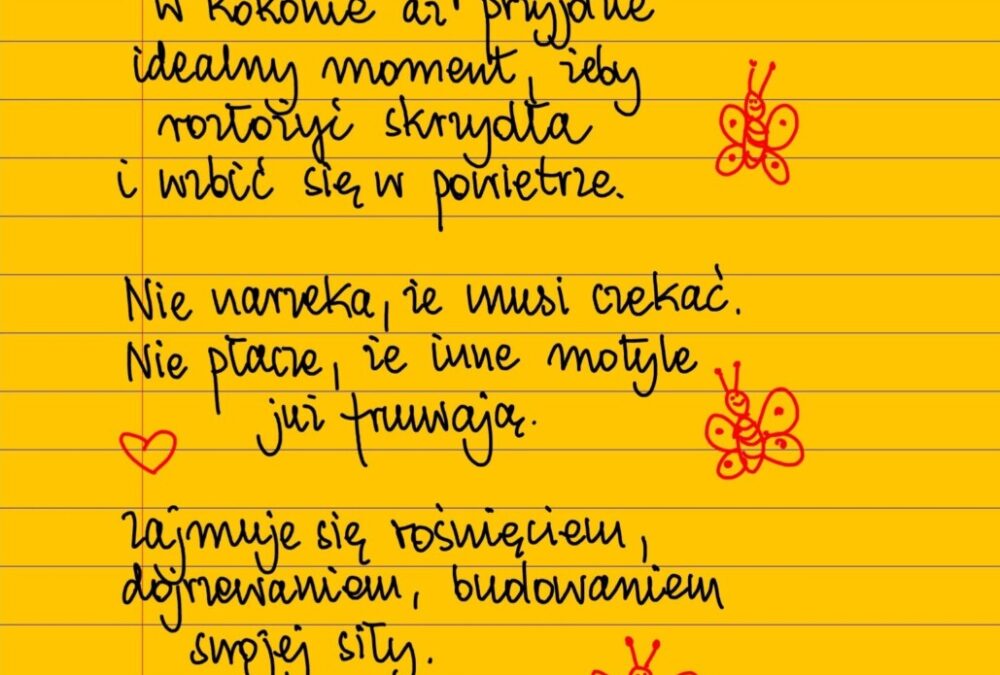 w kokonie aż przyjdzie
idealny moment, żeby
rozłożyć skrzydła
i wzbić się w powietrze.
Nie narzeka, że musi czekać.
Nie płacze, że inne motyle
już fruwają.
Zajmuje się rośnięciem,
dojrzewaniem, budowaniem
swojej siły.